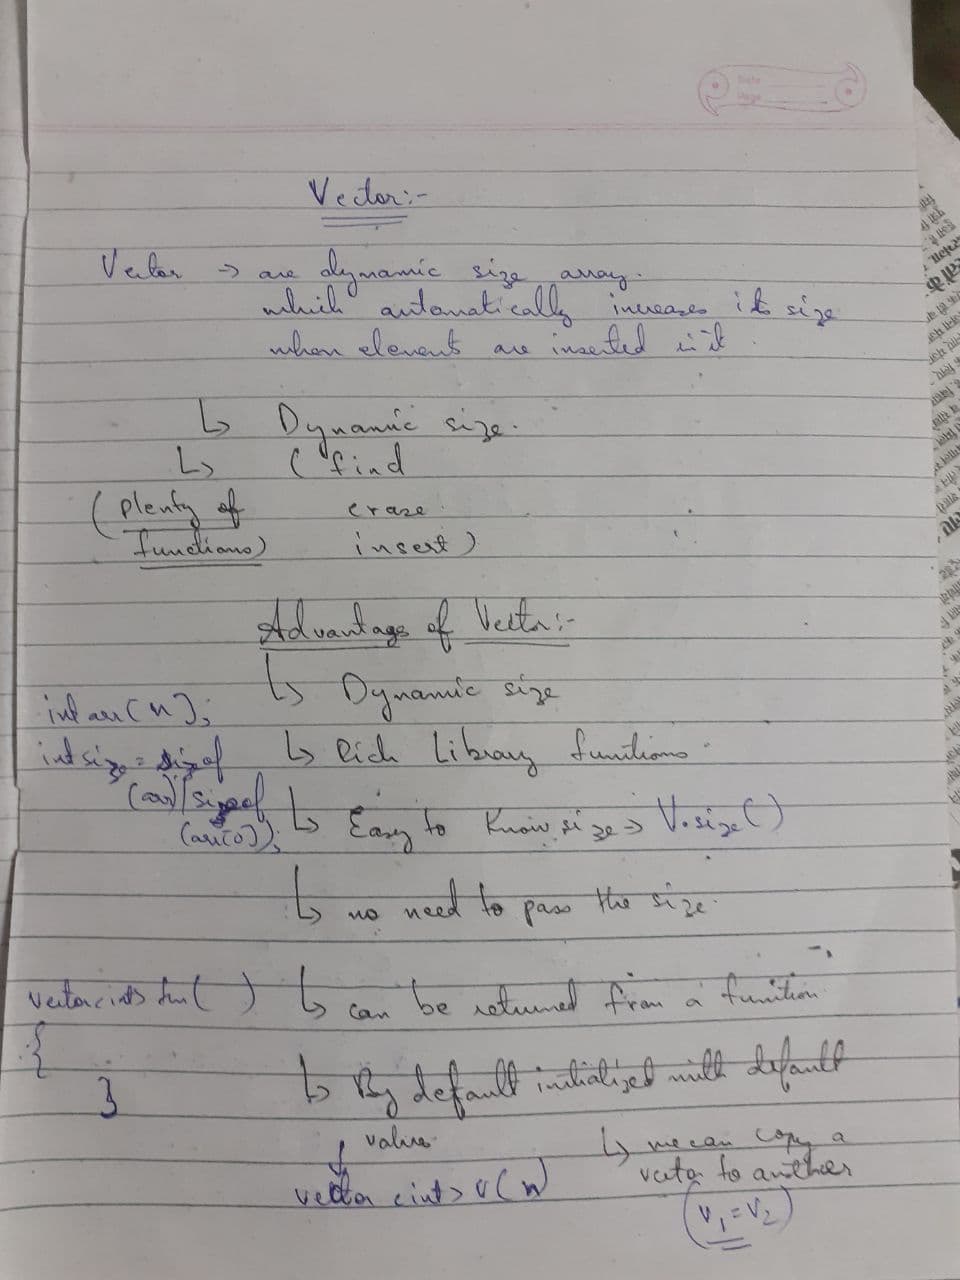 Date
Page
Vector:-
Vector → are dynamic size array.
which automatically increases its size
when elements are inserted in it.
↳ Dynamic size.
↳ ( find
(Plenty of erase
functions) insert )
Advantage of Vector:-
↳ Dynamic size
int arr[n];
↳ Rich Library functions.
int size = sizeof
(arr)/sizeof
(arr[0]);
↳ Easy to Know size → V.size()
↳ no need to pass the size.
vector<int> fun( )
{
}
↳ can be returned from a function
↳ By default initialized with default
value
vector<int> v(n)
↳ we can copy a
vector to another
(v1=v2)